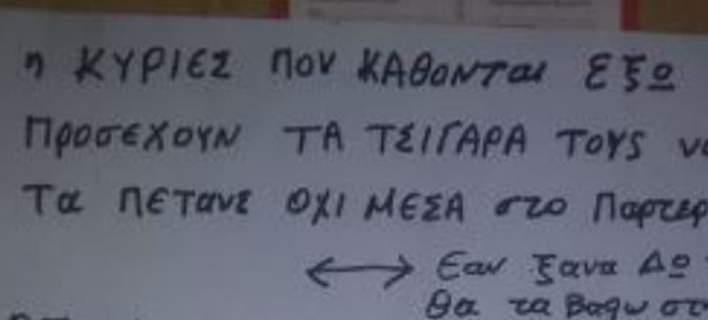 η ΚΥΡΙΕΣ ΠΟΥ ΚΑΘΟΝΤαι ΕΞΩ
ΠροσΕΧΟΥΝ ΤΑ ΤΣΙΓΑΡΑ ΤΟΥΣ
Τα ΠΕΤανε ΟΧΙ ΜΕΣΑ στο
Εαν ξανα ΔΩ
Θα τα βαθω